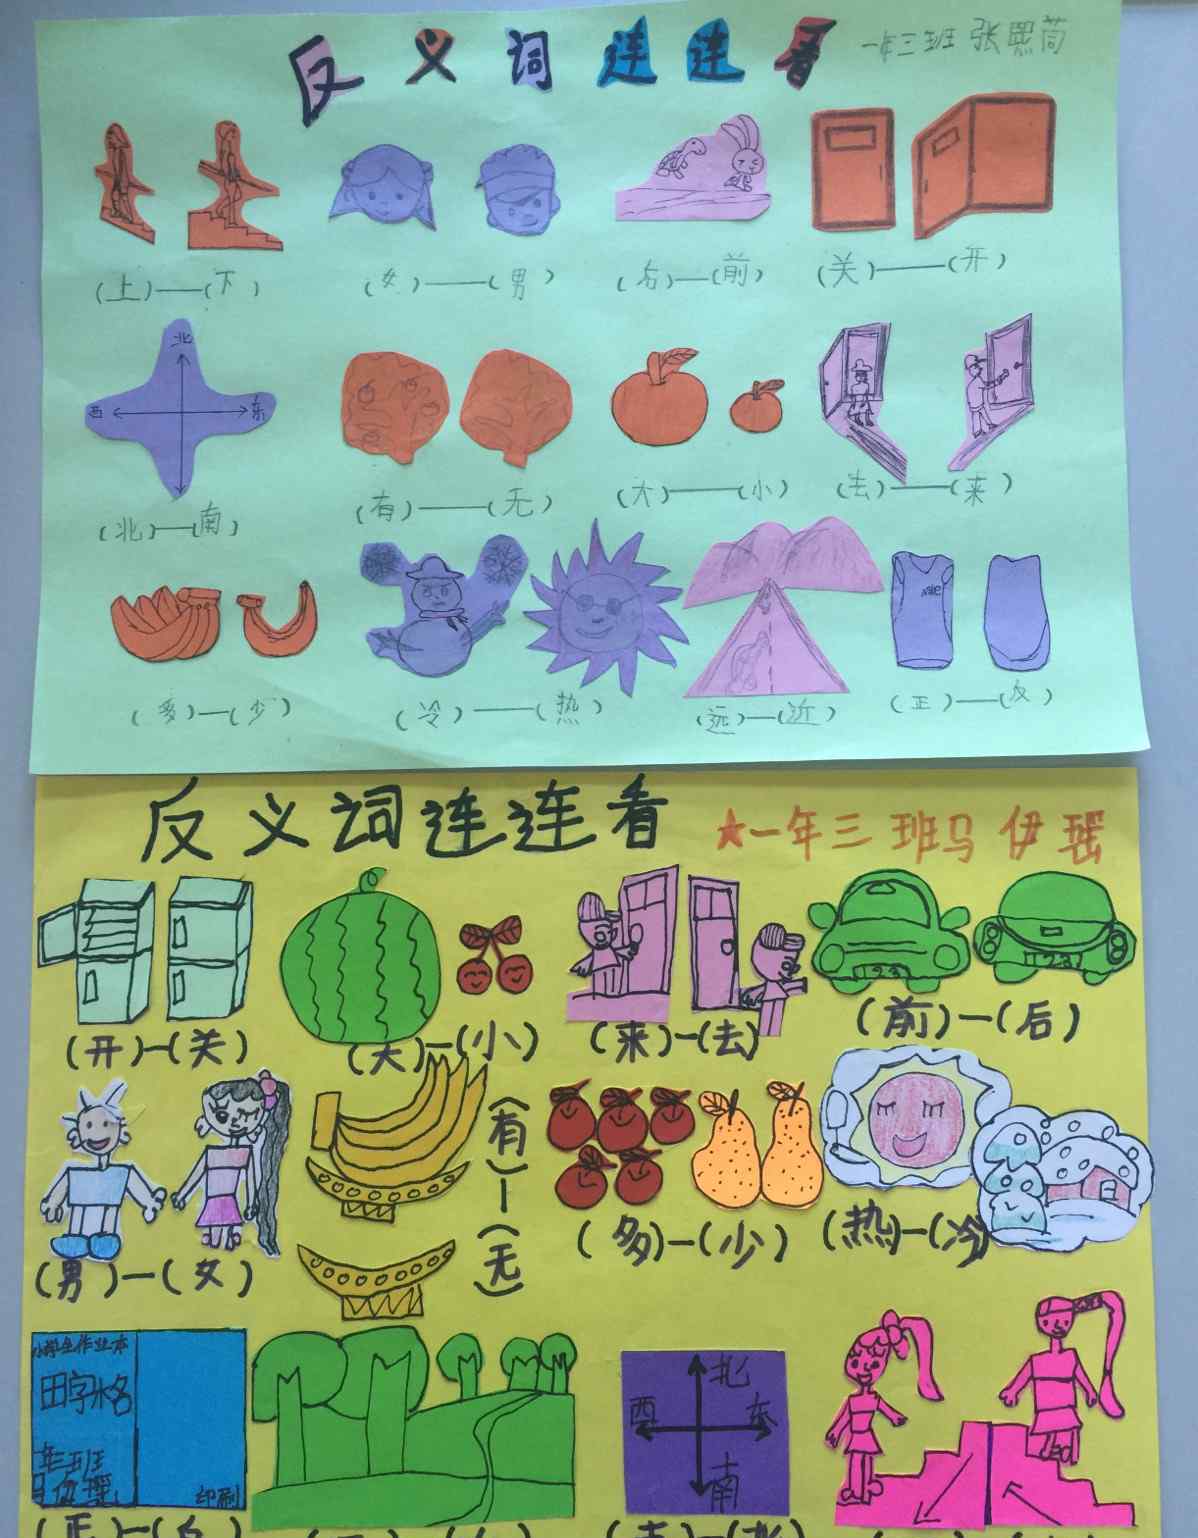 反义词连连看 一年三班 张熙茼
(上)——(下) (女)——(男) (后)—(前) (关)——(开)
北
西 东
(北)—(南) (有)——(无) (大)——(小) (去)——(来)
Nike
(多)—(少) (冷)——(热) (远)—(近) (正)——(反)
反义词连连看 ★一年三班马伊瑶
123 123
(开)—(关) (大)—(小) (来)—(去) (前)—(后)
(有)—(无)
(男)—(女) (多)—(少) (热)—(冷)
小学生作业本
田字格
北
西 东
南
一年三班
马伊瑶
印刷